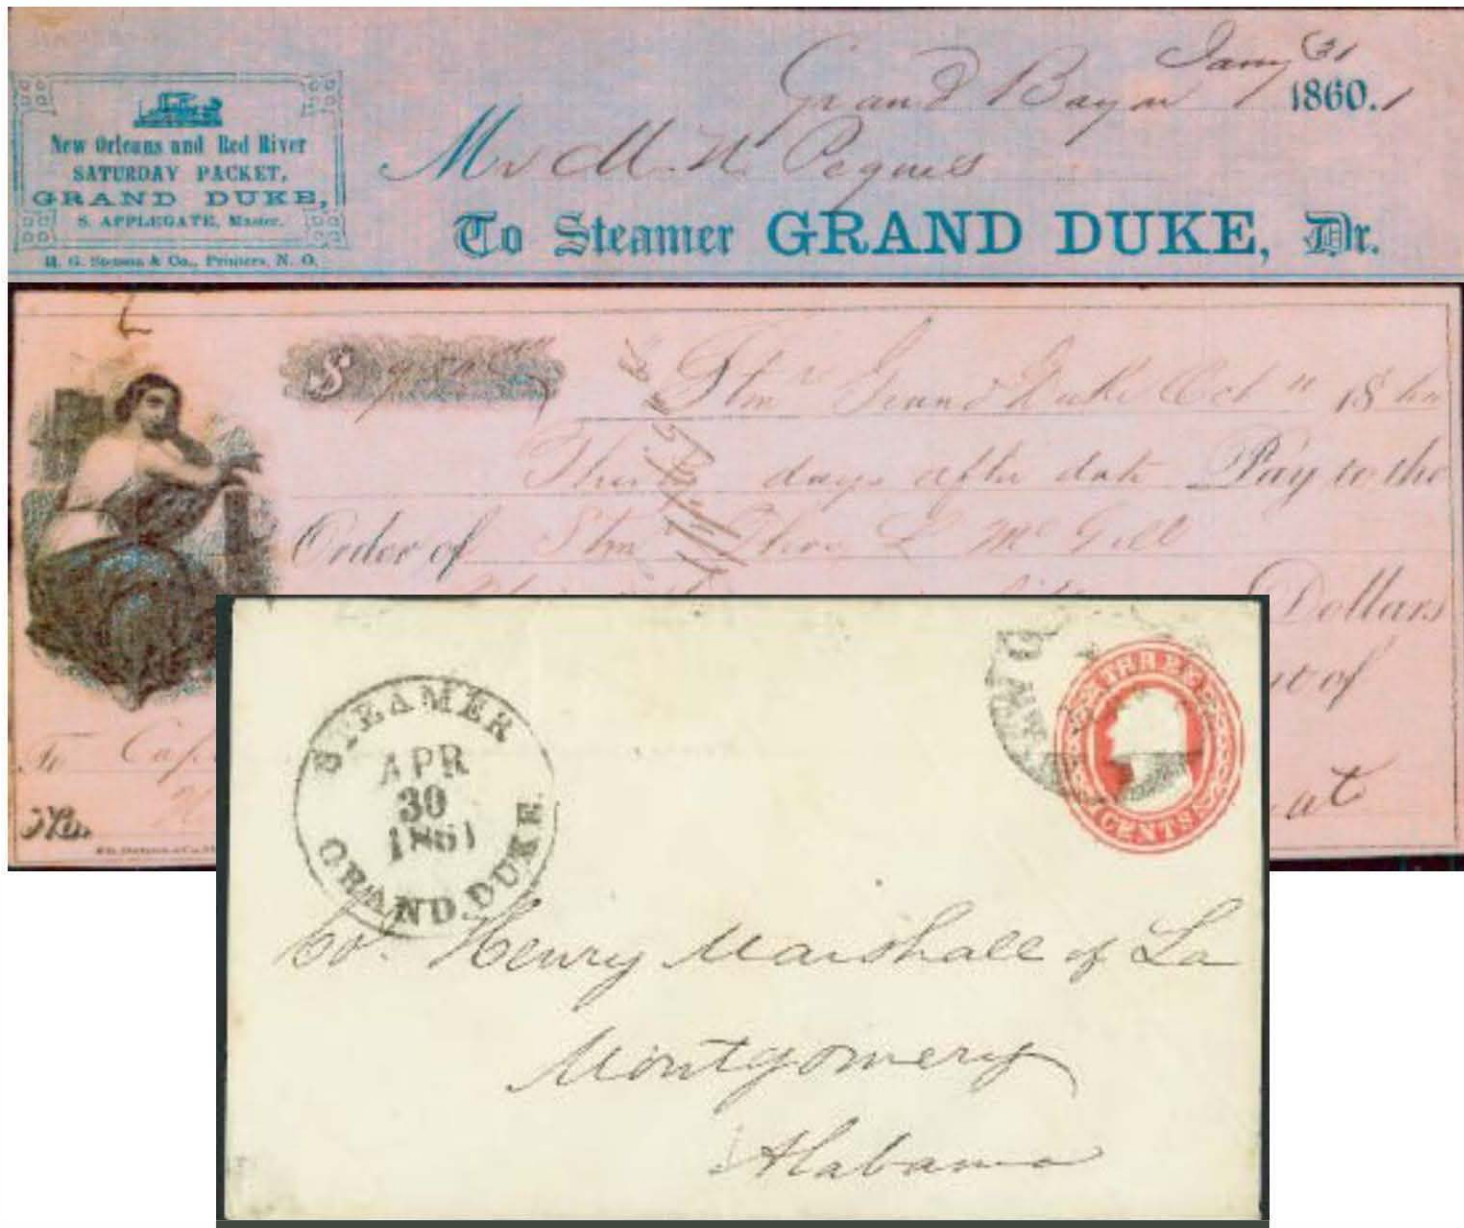 Jany 31
Grand Bayou 1860.1
New Orleans and Red River
SATURDAY PACKET,
GRAND DUKE,
S. APPLEGATE, Master.
H. G. Stetson & Co., Printers, N. O.
Mr M. W. Pegues
To Steamer GRAND DUKE, Dr.
$
Stmr Grand Duke Oct 11 1860
Thirty days after date Pay to the
Order of Stm Theo L McGill
Dollars
nt of
To Cap
at
STEAMER
APR
30
1861
GRAND DUKE.
THREE
CENTS
Co. Henry Marshall of La
Montgomery
Alabama